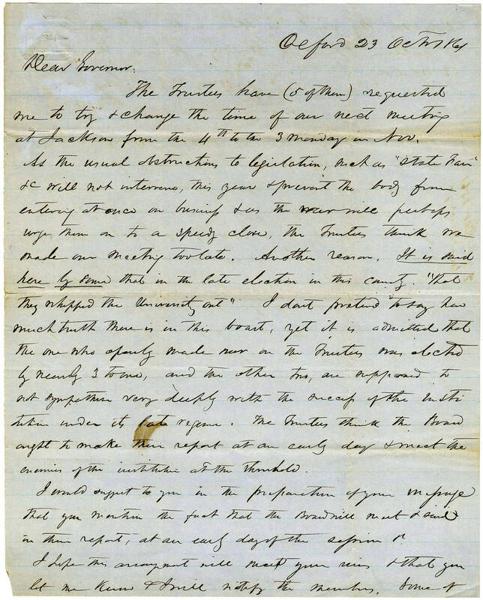 Oxford 23 Oct 1861
Dear Governor.
The Trustees have (5 of them) requested
me to try & change the time of our next meeting
at Jackson from the 4th to the 3 Monday in Nov.
As the usual obstructions to legislation, such as "State Fair"
&c will not intervene, this year & prevent the body from
entering at once on business & as the war will perhaps
urge them on to a speedy close, the Trustees think we
made our meeting too late. Another reason. It is said
here by some that in the late election in this county. "That
they whipped the University out" I dont pretend to say how
much truth there is in this boast, yet it is admitted that
the one who openly made war on the Trustees was elected
by nearly 3 to one, and the other two, are supposed to
not sympathise very deeply with the success of the insti
tution under its late regime. The Trustees think the Board
ought to make their report at an early day & meet the
enemies of the institution at the threshold.
I would suggest to you in the preparation of your message
that you mention the fact that the Board will meet & send
in their report, at an early day of the session
I hope this arrangement will meet your views & that you
let me know & I will notify the members. Some of